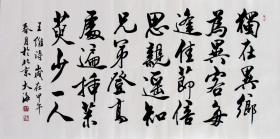 獨在異鄉
為異客每
逢佳節倍
思親遥知
兄弟登高
處遍插茱
萸少一人
王維詩歲在甲午
春月於北京大海